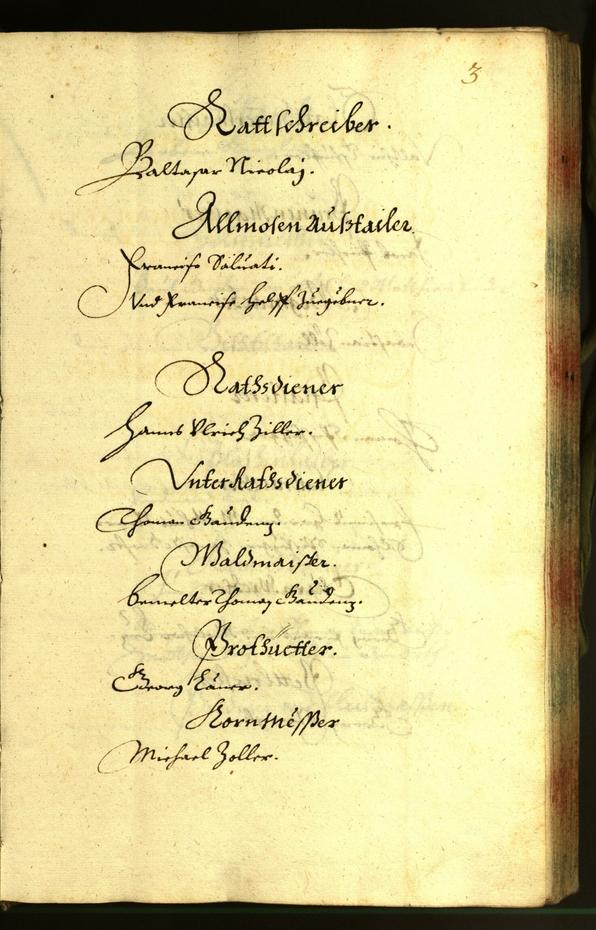 3
Rattschreiber.
Baltasar Nicolaj.
Allmosen Außtailer.
Francisc Saluati.
Vnd Francisc Zuegebner.
Rathsdiener
Hanns Vlrich Ziller.
Vnter Rathsdiener
Thoman Gaudenz.
Waldmaister.
bemelter Thoman Gaudenz.
Brothüetter.
Georg
Kornmësser
Michael Zoller.